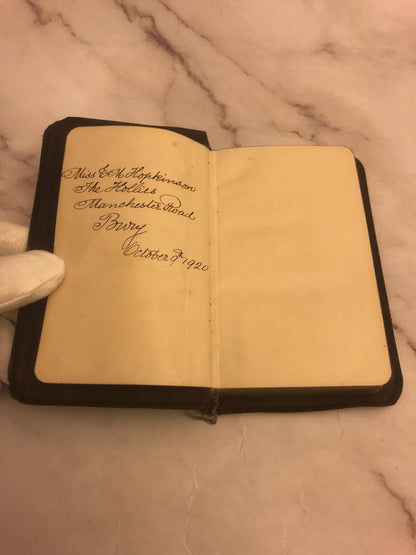 Miss E M Hopkinson
The Hollies
Manchester Road
Bury
October 9th 1920